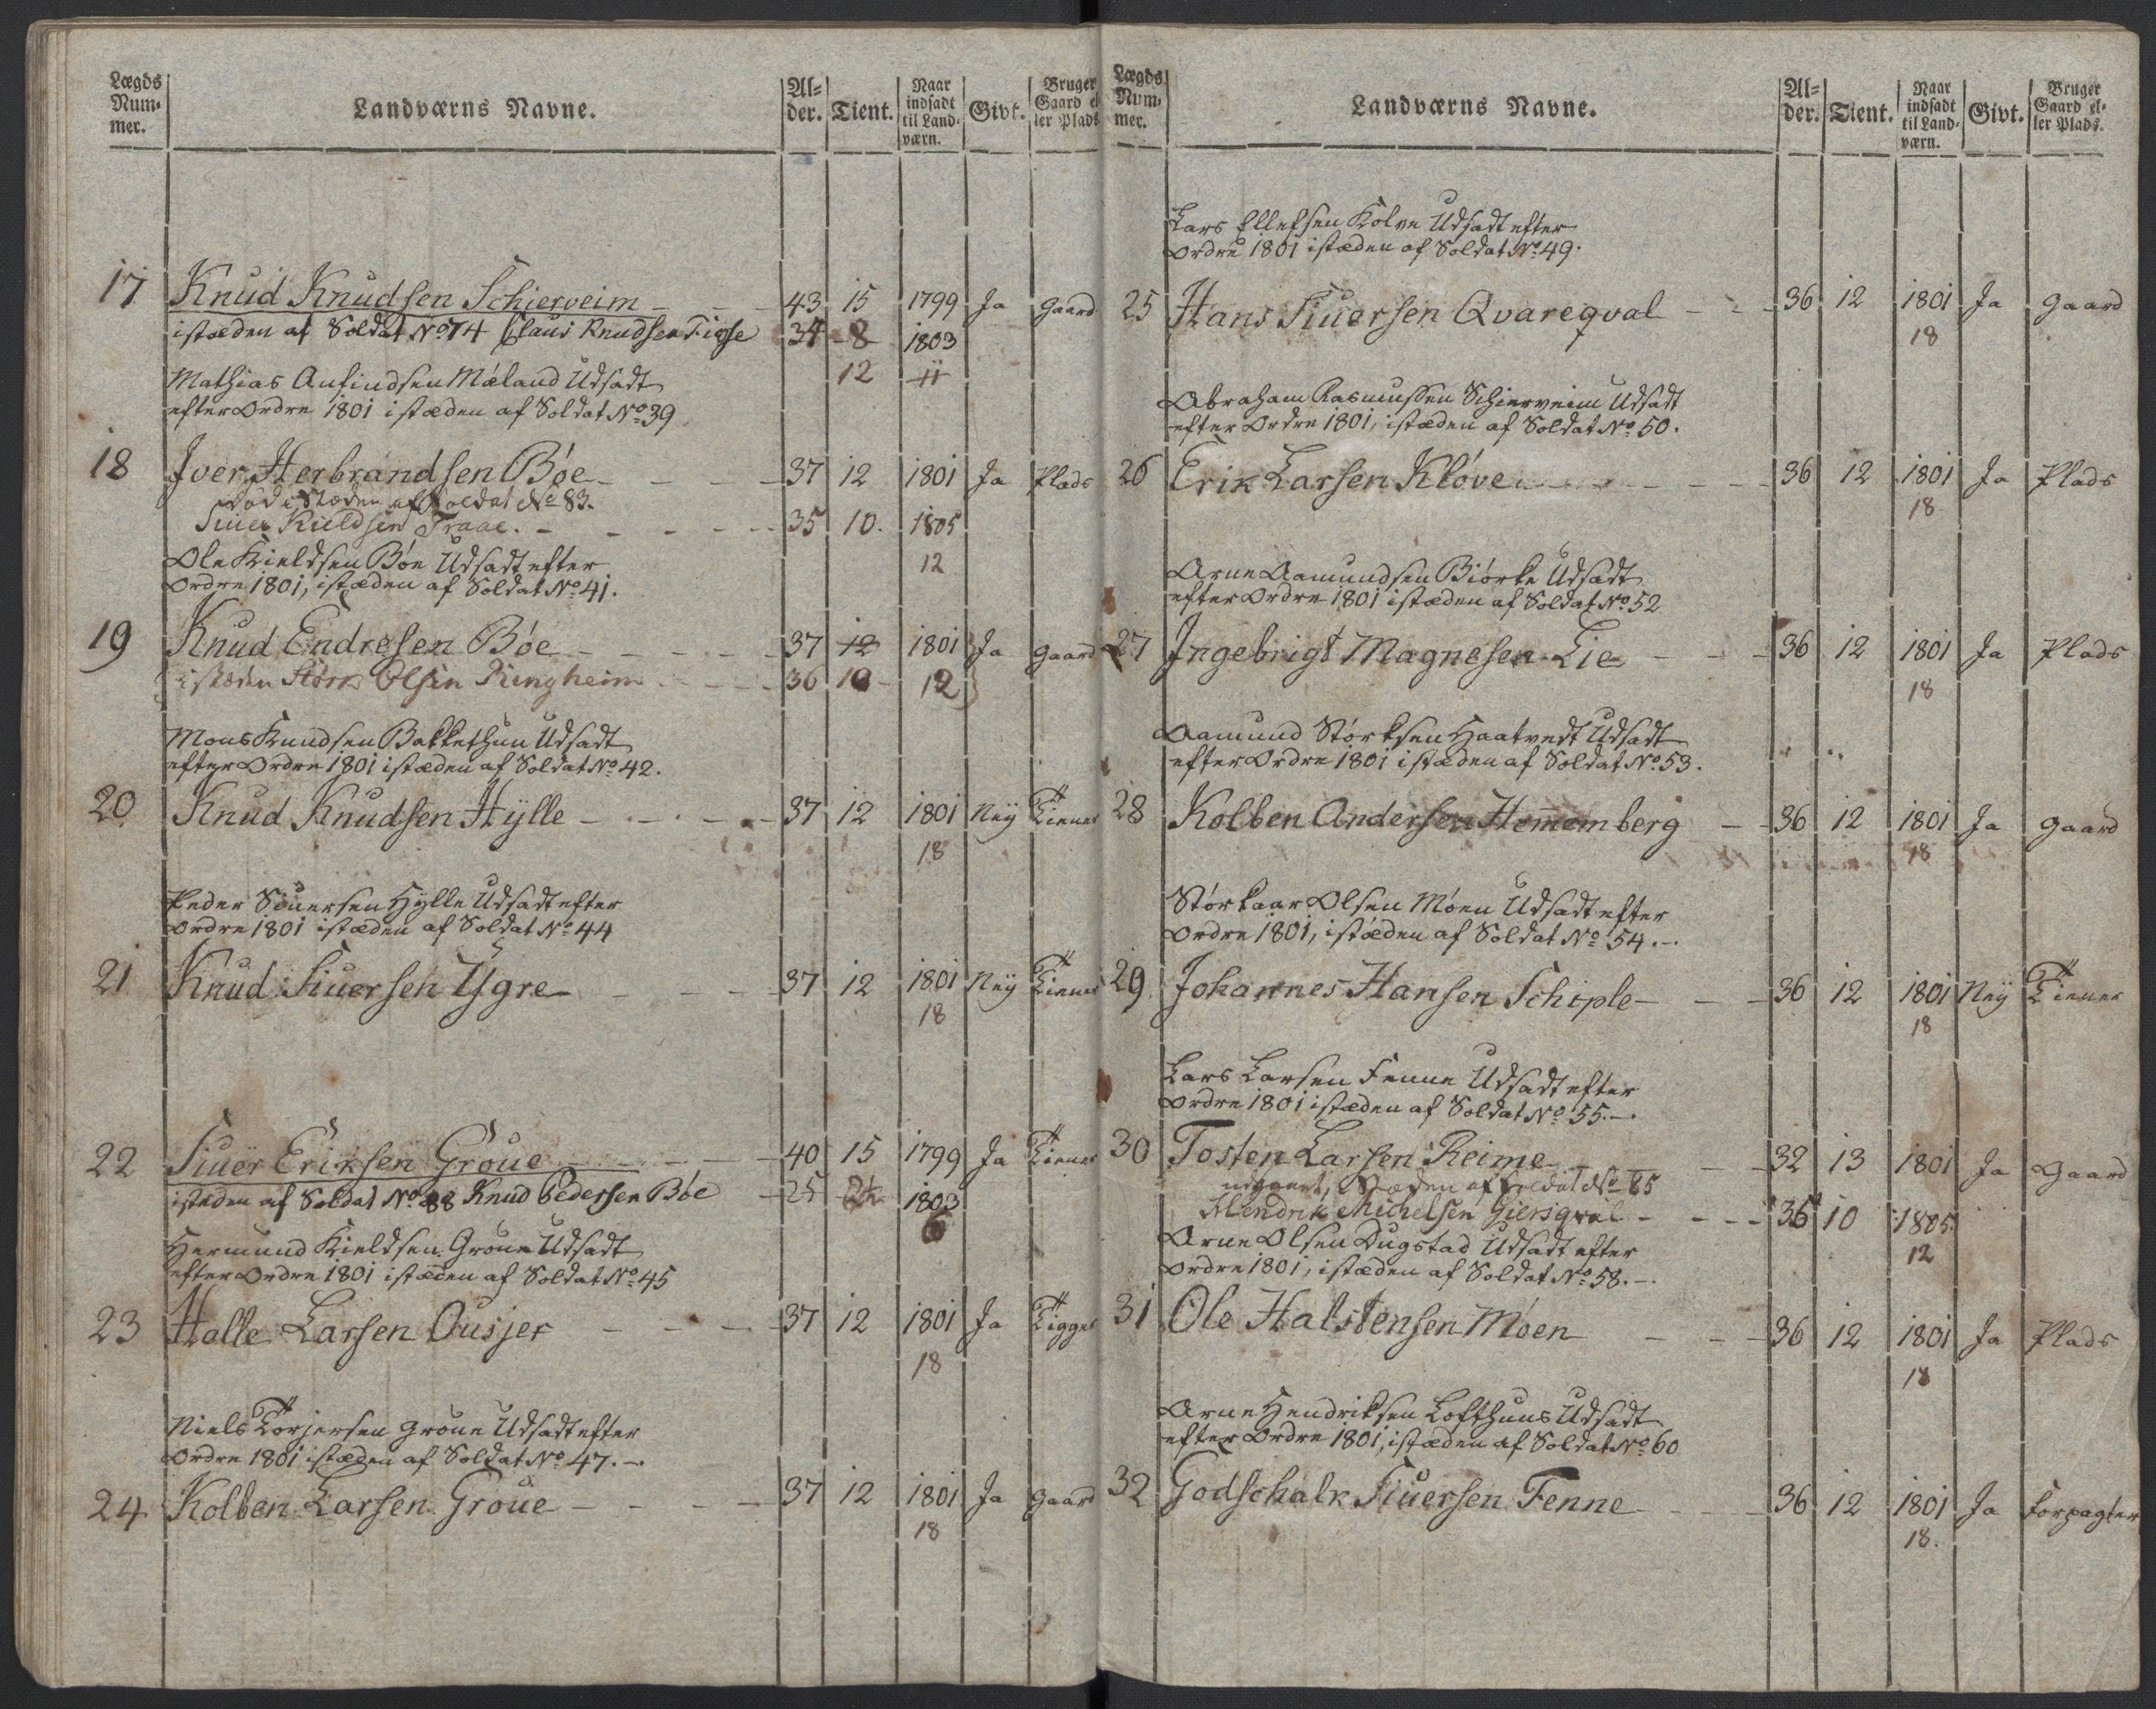 Lægds Num- mer. | Landværns Navne. | Al- der. | Tient. | Naar indsadt til Land- værn. | Givt. | Bruger Gaard el ler Plads
17 Knud Knudsen Schierveim - - - 43 15 1799 Ja Gaard
istæden af Soldat No 74 Claus Knudsen Figse 34 8 1803
12 11
Mathias Anfindsen Mæland Udsadt
efter Ordre 1801 istæden af Soldat No 39
18 Iver Herbrandsen Bøe - - - - 37 12 1801 Ja Plads
død i Stæden af Soldat No 83.
Siuer Kieldsen Traae. - - - - 35 10. 1805
12
Ole Kieldsen Bøe Udsadt efter
Ordre 1801, istæden af Soldat No 41.
19 Knud Endresen Bøe - - - - 37 12 1801 Ja Gaard
istæden Størk Olsen Ringheim - - - 36 10 - 12
Mons Knudsen Bakkethun Udsadt
efter Ordre 1801 istæden af Soldat No 42.
20 Knud Knudsen Hylle - - - - 37 12 1801 Neÿ Tiener
18
Peder Siuersen Hylle Udsadt efter
Ordre 1801 istæden af Soldat No 44
21 Knud Siuersen Ygre - - - 37 12 1801 Neÿ Tiener
18
22 Siuer Eriksen Groue - - - - 40 15 1799 Ja Tiener
istæden af Soldat No 88 Knud Pedersen Bøe - 25 2½ 1803
6
Hermund Kieldsen Groue Udsadt
efter Ordre 1801 istæden af Soldat No 45
23 Halle Larsen Ousjer - - - 37 12 1801 Ja Tigger
18
Niels Torjersen Groue Udsadt efter
Ordre 1801 istæden af Soldat No 47.-.
24 Kolben Larsen Groue - - - - 37 12 1801 Ja Gaard
18
Lægds Num- mer. | Landværns Navne. | Al- der. | Tient. | Naar indsadt til Land- værn. | Givt. | Bruger Gaard el- ler Plads.
Lars Ellefsen Kolve Udsadt efter
Ordre 1801 istæden af Soldat No 49.
25 Hans Siuersen Qvareqval - - - 36 12 1801 Ja Gaard
18
Abraham Rasmussen Schierveim Udsadt
efter Ordre 1801, istæden af Soldat No 50.
26 Erik Larsen Kløve - - - - 36 12 1801 Ja Plads
18
Arne Aamundsen Biørke Udsadt
efter Ordre 1801 istæden af Soldat No 52
27 Ingebrigt Magnesen Lie - - - 36 12 1801 Ja Plads
18
Aamund Størksen Haatvedt Udsadt
efter Ordre 1801 istæden af Soldat No 53.
28 Kolben Andersen Hemomberg - - 36 12 1801 Ja Gaard
18
Størkaar Olsen Møen Udsadt efter
Ordre 1801, istæden af Soldat No 54.-.
29 Johannes Hansen Schiple - - - 36 12 1801 Neÿ Tiener
18
Lars Larsen Fenne Udsadt efter
Ordre 1801 istæden af Soldat No 55.-.
30 Tosten Larsen Reime - - 32 13 1801 Ja Gaard
Stæden af Soldat No 85
Hendrik Michelsen Giersqval - - - 36 10 1805
12
Arne Olsen Dugstad Udsadt efter
Ordre 1801, istæden af Soldat No 58.-.
31 Ole Halstensen Møen - - - 36 12 1801 Ja Plads
18
Arne Hendriksen Lofthuus Udsadt
efter Ordre 1801, istæden af Soldat No 60
32 Godschalk Siuersen Fenne - - - 36 12 1801 Ja Forpagter
18.